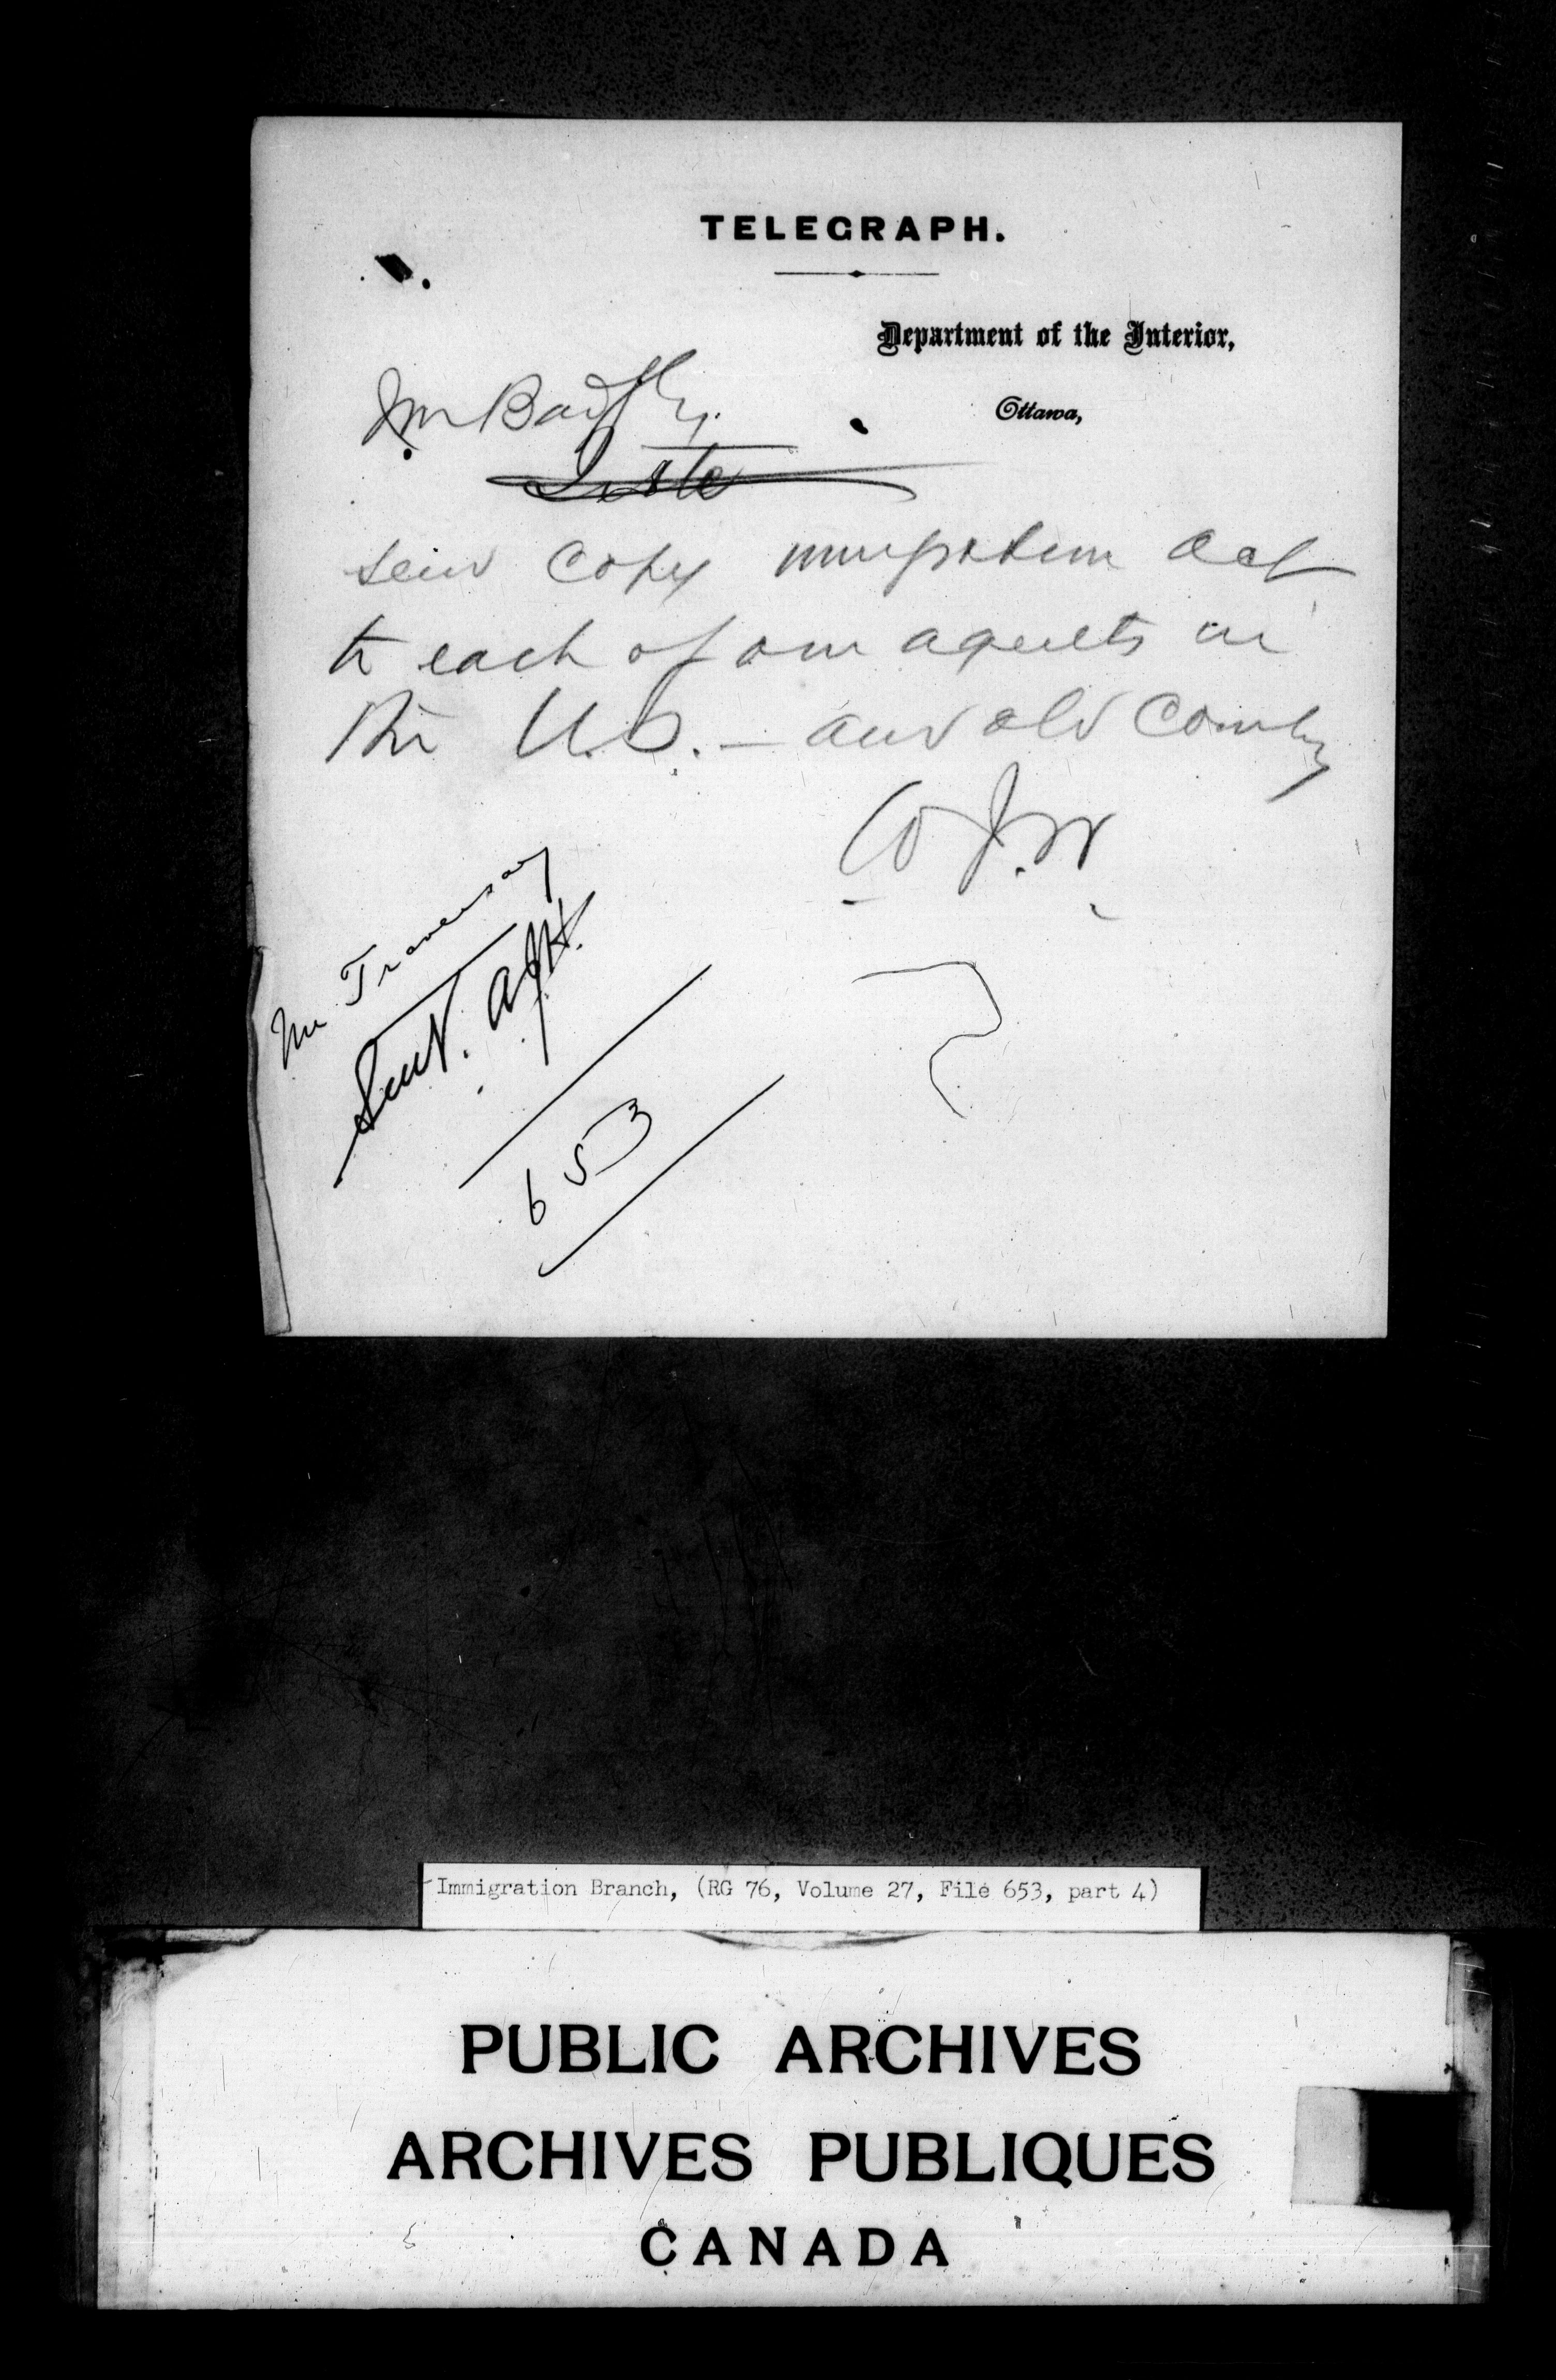 TELEGRAPH.
Department of the Interior,
Ottawa,
Mr
send copy immigration act
to each of our agents in
the U.S. — and old Country
W J. W
Mr Traversay
Sent.
653
Immigration Branch, (RG 76, Volume 27, File 653, part 4)
PUBLIC ARCHIVES
ARCHIVES PUBLIQUES
CANADA